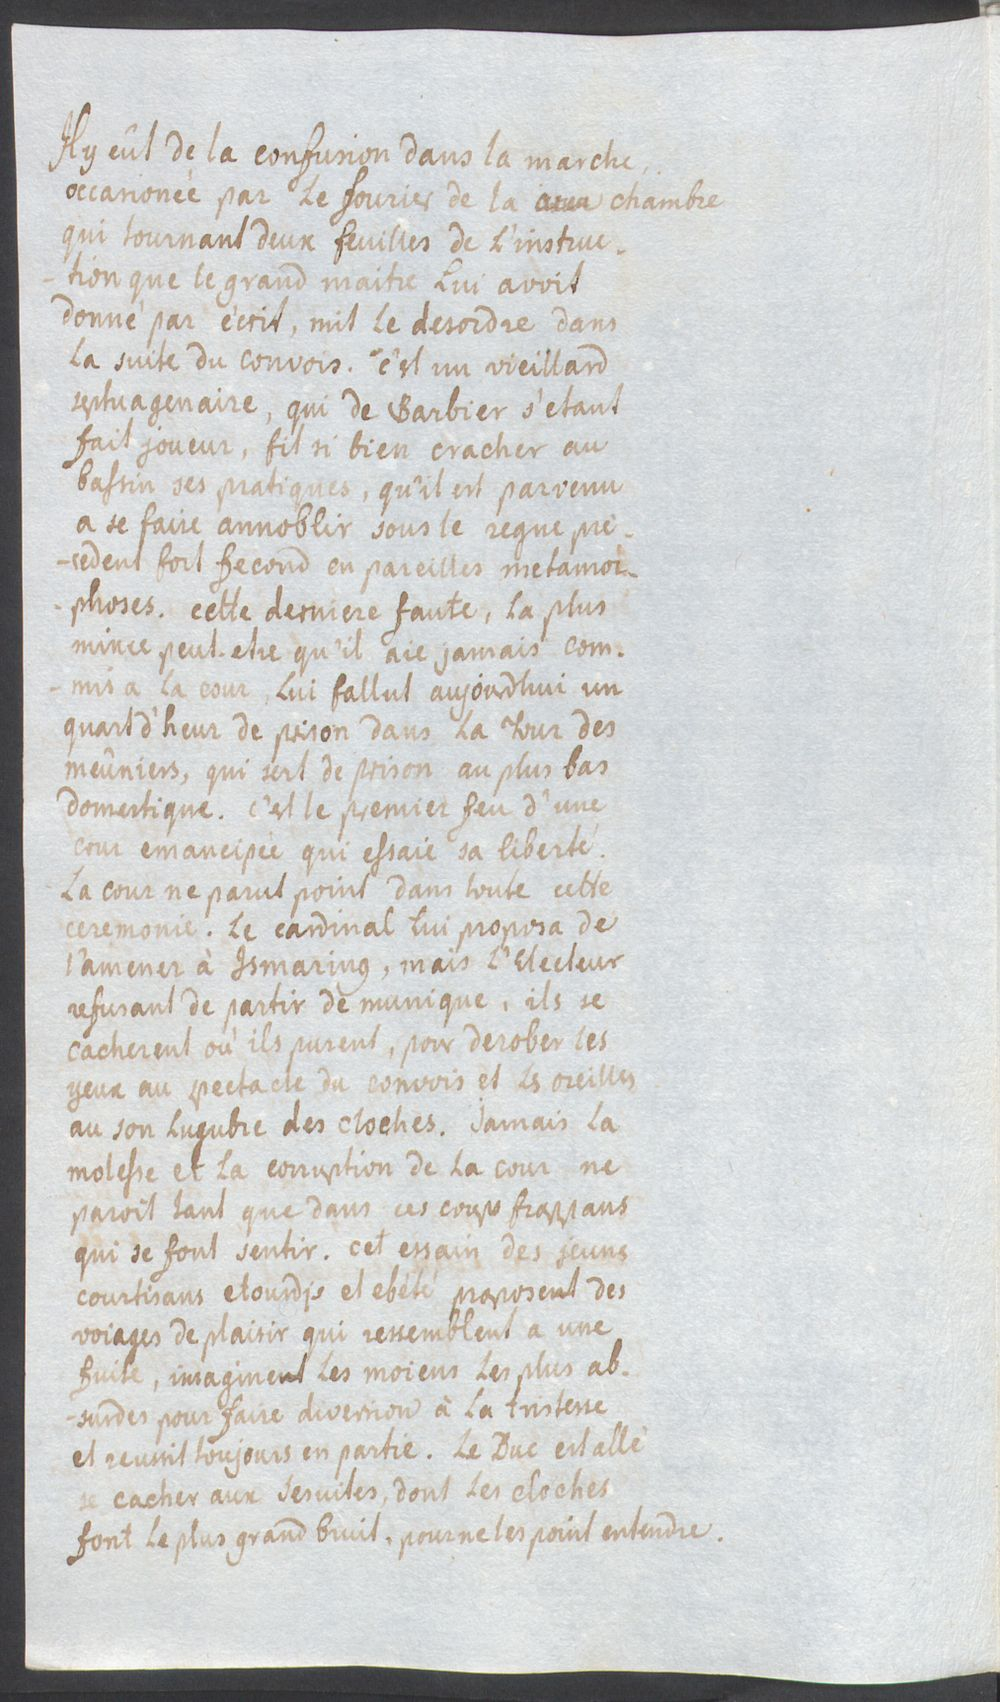 Il y eût de la confusion dans la marche,
occasionée par le fourier de la chambre
qui tournant deux feuilles de L'instruc-
-tion que le grand maitre Lui avoit
donné par écrit, mit le desordre dans
La suite du convois. c'est un vieillard
septuagenaire, qui de Barbier s'etant
fait joueur, fit si bien cracher au
bassin ses pratiques, qu'il est parvenu
a se faire annoblir sous le regne pre-
-cedent fort fecond en pareilles metamor-
-phoses. cette derniere faute, La plus
mince peut-etre qu'il aie jamais com-
-mis a La cour, Lui fallut aujourdhui un
quart d'heur de prison dans La tour des
meûniers, qui sert de prison au plus bas
domestique. c'est le premier feu d'une
cour emancipée qui essaie sa liberté.
La cour ne parut point dans toute cette
ceremonie. Le cardinal Lui proposa de
l'amener à Ismaring, mais L'Electeur
refusant de partir de munique, ils se
cacherent où ils purent, pour derober les
yeux au spectacle du convois et Les oreilles
au son Lugubre des cloches. Jamais La
molesse et La corruption de La cour ne
paroit tant que dans ces coups frappans
qui se font sentir. cet essain des jeunes
courtisans etourdis et ebété proposent des
voiages de plaisir qui ressemblent a une
fuite, imaginent Les moiens Les plus ab-
-surdes pour faire diversion à La tristesse
et reussit toujours en partie. Le Duc est allé
se cacher aux Jesuites, dont Les cloches
font Le plus grand bruit, pour ne les point entendre.